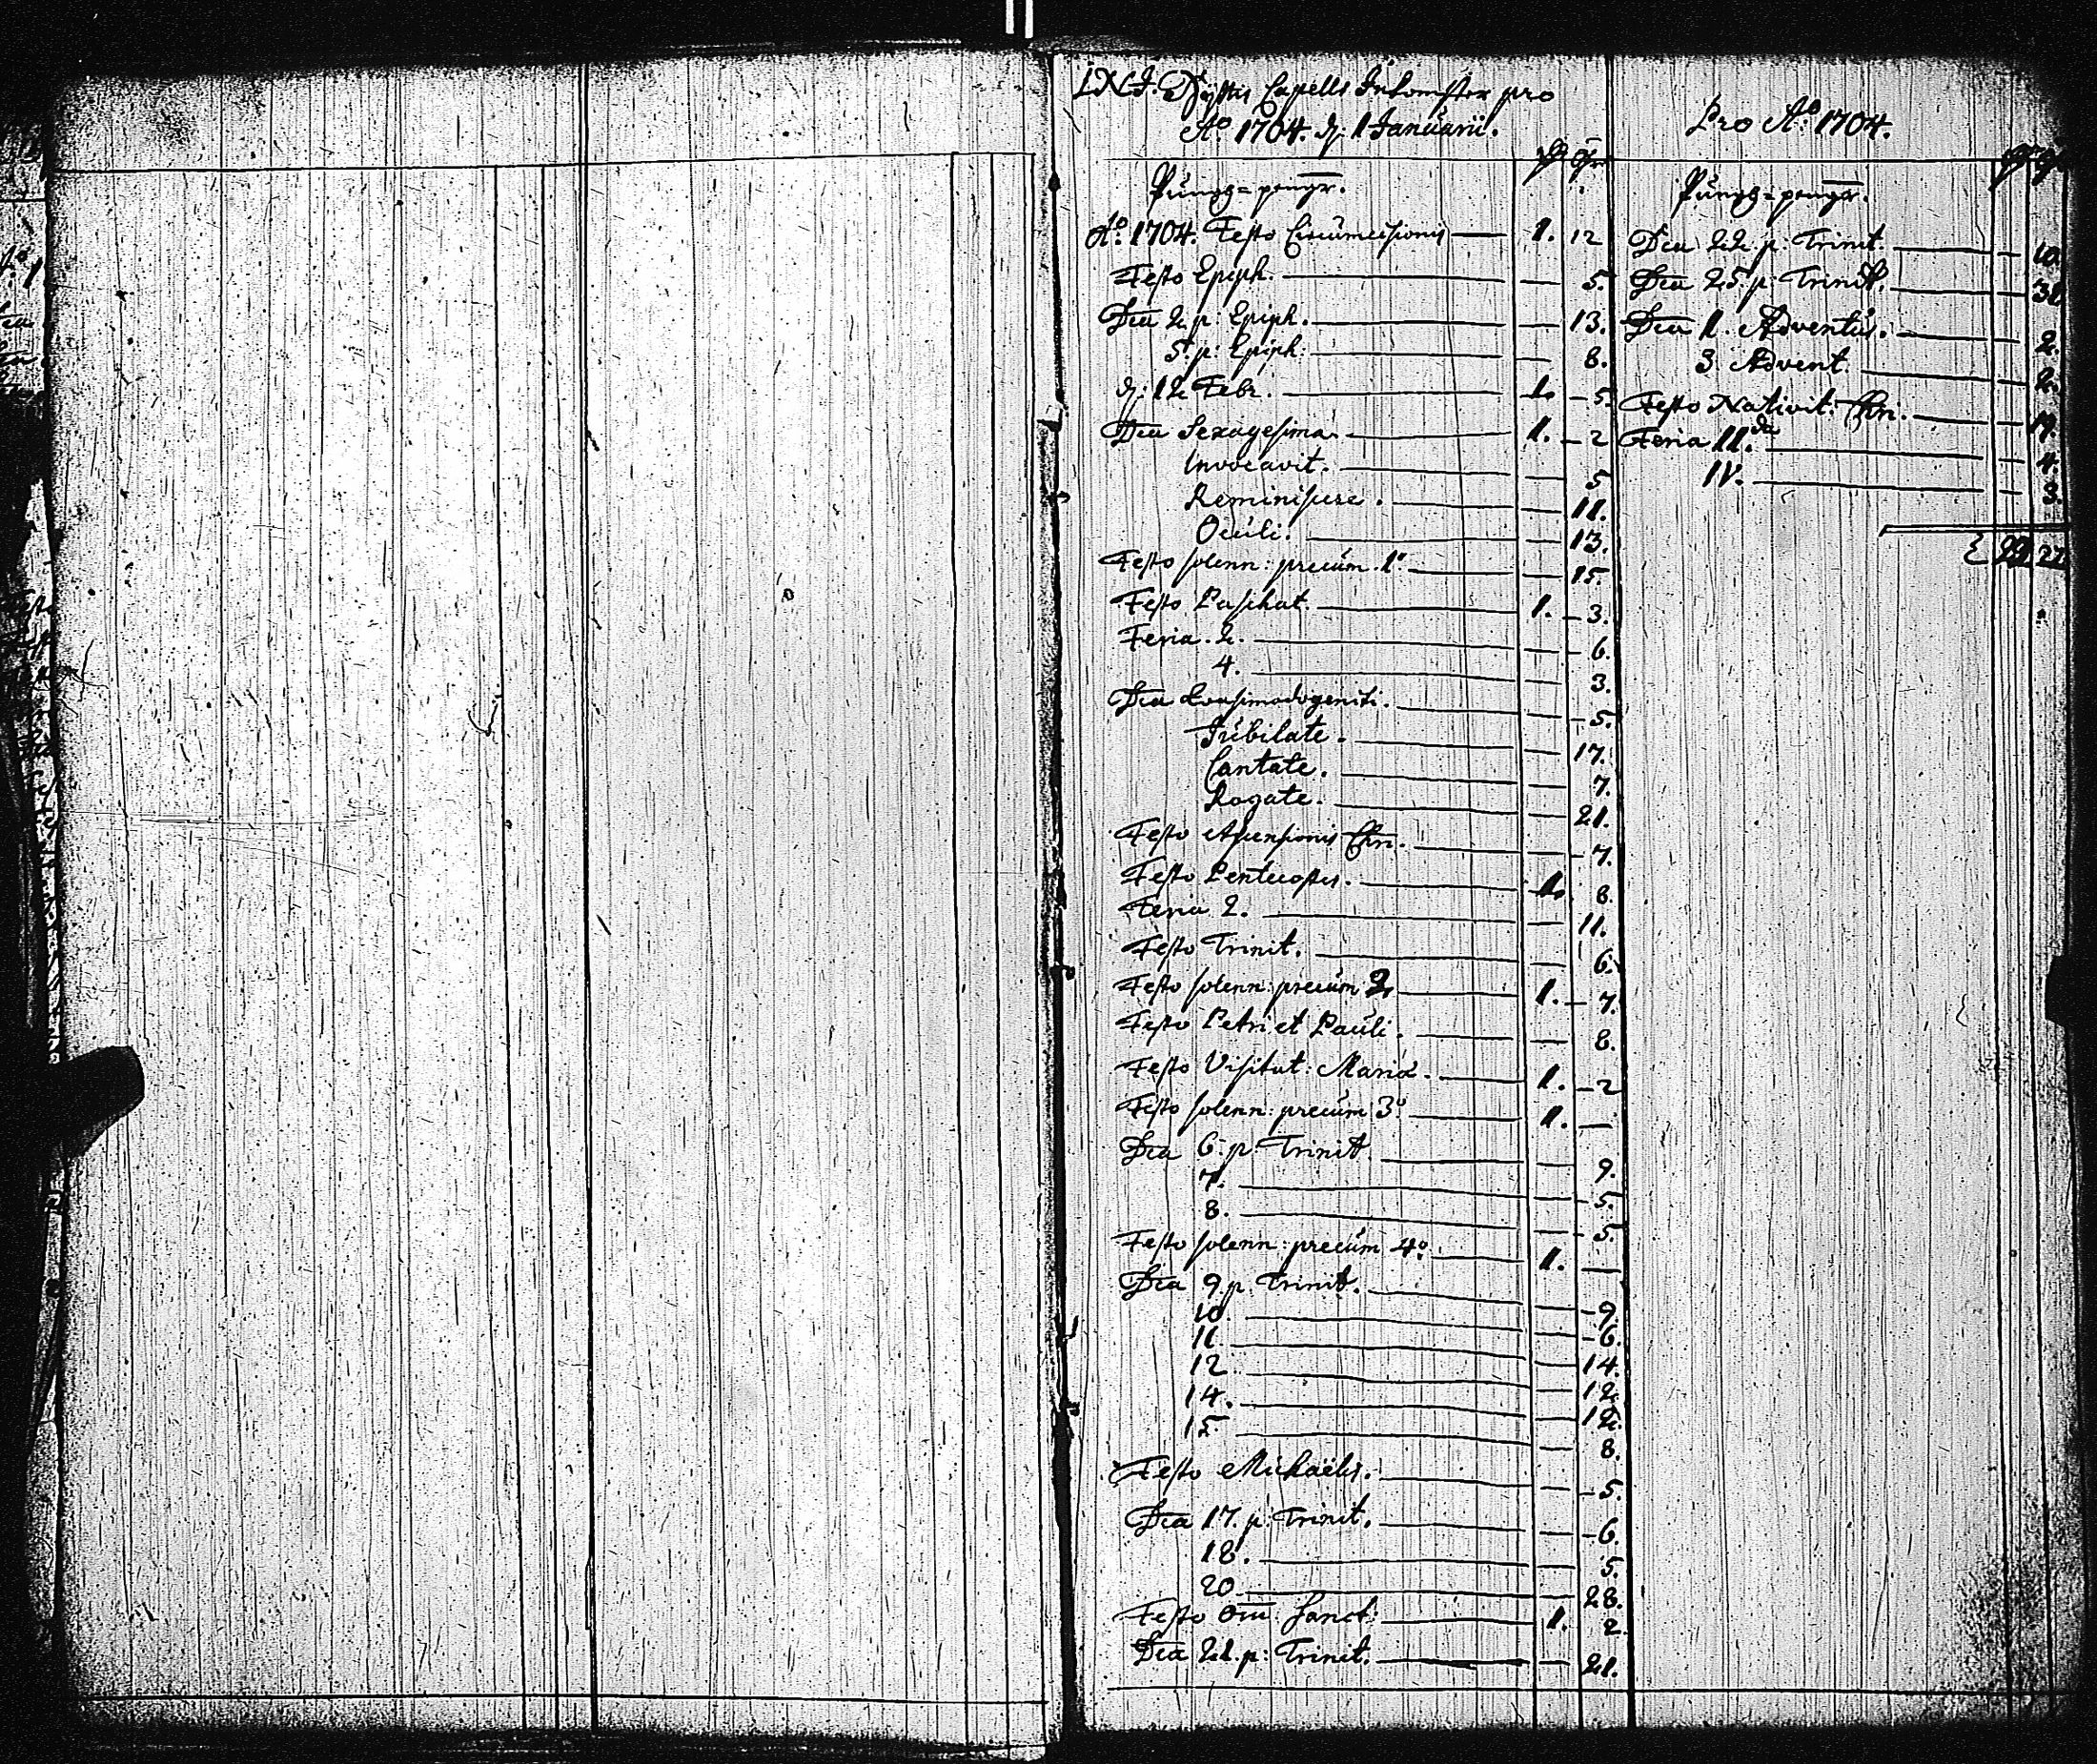 I.N.J. Capells Inkomster pro
Ao 1704. d: 1 Januarii.
Pro Ao: 1704.
Pungz=pengr.
Ao: 1704. Festo Circumcisionis 1. 12
Festo Epiph. — 5.
Dca 2 p: Epiph. — 13.
5. p: Epiph: — 8.
d: 12 Febr. 1. 5.
Dca Sexagesima. 1. 2
Invocavit. — 5
Reminiscere. — 11.
Oculi. — 13.
Festo solenn: precum 1o — 15.
Festo Paschat. 1. 3.
Feria. 2. — 6.
4. — 3.
Dca Quasimodogeniti. — 5.
Jubilate. — 17.
Cantate. — 7.
Rogate. — 21.
Festo Ascensionis Chri. — 7.
Festo Pentecostes. 1. 8.
Feria 2. — 11.
Festo Trinit. — 6.
Festo solenn: precum 2 1. 7.
Festo Petri et Pauli. — 8.
Festo Visitat: Mariæ. 1. 2
Festo solenn: precum 3o 1. —
Dca 6. p: Trinit. — 9.
7. — 5.
8. — 5.
Festo solenn: precum 4o 1. —
Dca 9 p. Trinit. — 9.
10. — 6.
11. — 14.
12 — 12.
14. — 12.
15 — 8.
Festo Michaelis. — 5.
Dca 17. p: Trinit. — 6.
18. — 5.
20 — 28.
Festo Om Sanct: 1. 2
Dca 21. p: Trinit. — 21.
Pungz=pengr.
Dca 22 p: Trinit. — 10.
Dca 25. p: Trinit. — 31
Dca 1. Adventus. — 2.
3 Advent. — 2.
Festo Nativit: Chri. — 19.
Feria II.da — 4.
IV. — 3.
22